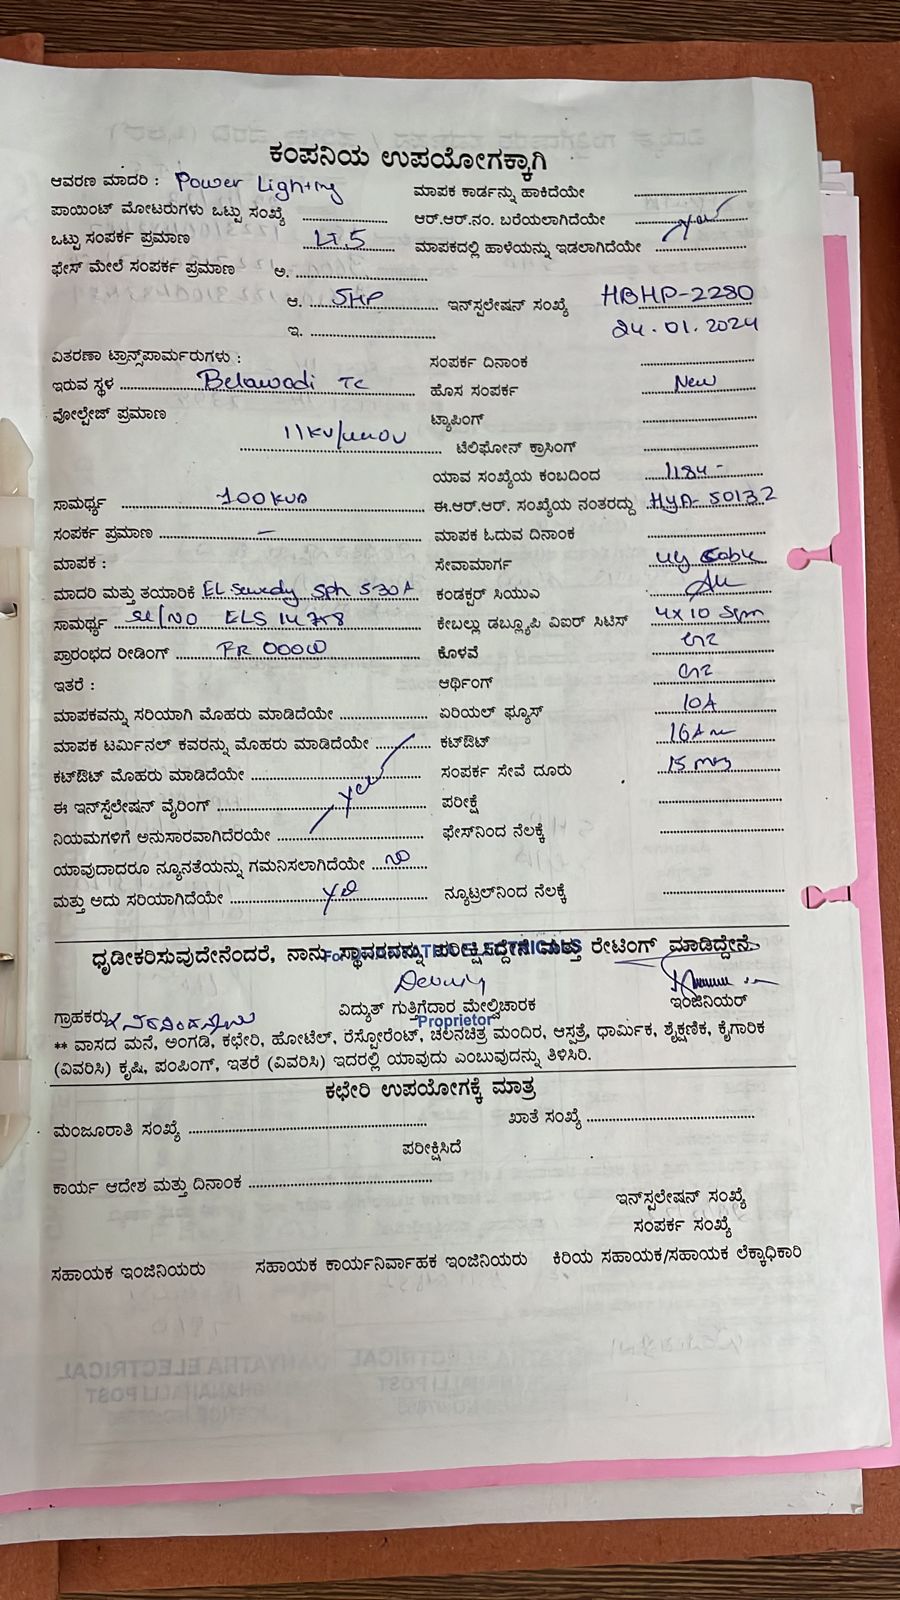 ಕಂಪನಿಯ ಉಪಯೋಗಕ್ಕಾಗಿ
ಆವರಣ ಮಾದರಿ : Power Lighting ಮಾಪಕ ಕಾರ್ಡನ್ನು ಹಾಕಿದೆಯೇ
ಪಾಯಿಂಟ್ ಮೋಟರುಗಳು ಒಟ್ಟು ಸಂಖ್ಯೆ ಆರ್.ಆರ್.ನಂ. ಬರೆಯಲಾಗಿದೆಯೇ
ಒಟ್ಟು ಸಂಪರ್ಕ ಪ್ರಮಾಣ LT.5 ಮಾಪಕದಲ್ಲಿ ಹಾಳೆಯನ್ನು ಇಡಲಾಗಿದೆಯೇ yes
ಫೇಸ್ ಮೇಲೆ ಸಂಪರ್ಕ ಪ್ರಮಾಣ ಅ.
ಆ. 5HP ಇನ್‌ಸ್ಟಲೇಷನ್ ಸಂಖ್ಯೆ HBHP-2280
ಇ. 24.01.2024
ವಿತರಣಾ ಟ್ರಾನ್ಸ್‌ಪಾರ್ಮರುಗಳು : ಸಂಪರ್ಕ ದಿನಾಂಕ
ಇರುವ ಸ್ಥಳ Belawadi TC ಹೊಸ ಸಂಪರ್ಕ New
ವೋಲ್ಟೇಜ್ ಪ್ರಮಾಣ ಟ್ಯಾಪಿಂಗ್
11KV/440V ಟೆಲಿಫೋನ್ ಕ್ರಾಸಿಂಗ್
ಯಾವ ಸಂಖ್ಯೆಯ ಕಂಬದಿಂದ 1184 -
ಸಾಮರ್ಥ್ಯ 100KVA ಈ.ಆರ್.ಆರ್. ಸಂಖ್ಯೆಯ ನಂತರದ್ದು HYA- 50132
ಸಂಪರ್ಕ ಪ್ರಮಾಣ – ಮಾಪಕ ಓದುವ ದಿನಾಂಕ
ಮಾಪಕ : ಸೇವಾಮಾರ್ಗ ug cable
ಮಾದರಿ ಮತ್ತು ತಯಾರಿಕೆ EL Sewedy 3ph 5-30A ಕಂಡಕ್ಟರ್ ಸಿಯುವಿ
ಸಾಮರ್ಥ್ಯ Sl/NO ELS ಕೇಬಲ್ಲು ಡಬ್ಲ್ಯೂಪಿ ವಿಐರ್ ಸಿಟಿಸ್ 4x10 Sqm
ಪ್ರಾರಂಭದ ರೀಡಿಂಗ್ ಕೊಳವೆ
ಇತರೆ : ಆರ್ಥಿಂಗ್
ಮಾಪಕವನ್ನು ಸರಿಯಾಗಿ ಮೊಹರು ಮಾಡಿದೆಯೇ ಏರಿಯಲ್ ಫ್ಯೂಸ್ 10A
ಮಾಪಕ ಟರ್ಮಿನಲ್ ಕವರನ್ನು ಮೊಹರು ಮಾಡಿದೆಯೇ ಕಟ್‌ಔಟ್ 16A
ಕಟ್‌ಔಟ್ ಮೊಹರು ಮಾಡಿದೆಯೇ ಸಂಪರ್ಕ ಸೇವೆ ದೂರು 15
ಈ ಇನ್‌ಸ್ಟಲೇಷನ್ ವೈರಿಂಗ್ yes ಪರೀಕ್ಷೆ
ನಿಯಮಗಳಿಗೆ ಅನುಸಾರವಾಗಿದೆರಯೇ ಫೇಸ್‌ನಿಂದ ನೆಲಕ್ಕೆ
ಯಾವುದಾದರೂ ನ್ಯೂನತೆಯನ್ನು ಗಮನಿಸಲಾಗಿದೆಯೇ NO
ಮತ್ತು ಅದು ಸರಿಯಾಗಿದೆಯೇ yes ನ್ಯೂಟ್ರಲ್‌ನಿಂದ ನೆಲಕ್ಕೆ
ಧೃಡೀಕರಿಸುವುದೇನೆಂದರೆ, ನಾನು ಸ್ಥಾವರವನ್ನು ಪರೀಕ್ಷಿಸಿದ್ದೇನೆ ಮತ್ತು ರೇಟಿಂಗ್ ಮಾಡಿದ್ದೇನೆ
ಗ್ರಾಹಕರು ವಿದ್ಯುತ್ ಗುತ್ತಿಗೆದಾರ ಮೇಲ್ವಿಚಾರಕ ಇಂಜಿನಿಯರ್
Proprietor
** ವಾಸದ ಮನೆ, ಅಂಗಡಿ, ಕಛೇರಿ, ಹೋಟೆಲ್, ರೆಸ್ಟೋರೆಂಟ್, ಚಲನಚಿತ್ರ ಮಂದಿರ, ಆಸ್ಪತ್ರೆ, ಧಾರ್ಮಿಕ, ಶೈಕ್ಷಣಿಕ, ಕೈಗಾರಿಕ
(ವಿವರಿಸಿ) ಕೃಷಿ, ಪಂಪಿಂಗ್, ಇತರೆ (ವಿವರಿಸಿ) ಇದರಲ್ಲಿ ಯಾವುದು ಎಂಬುವುದನ್ನು ತಿಳಿಸಿರಿ.
ಕಛೇರಿ ಉಪಯೋಗಕ್ಕೆ ಮಾತ್ರ
ಮಂಜೂರಾತಿ ಸಂಖ್ಯೆ ಖಾತೆ ಸಂಖ್ಯೆ
ಪರೀಕ್ಷಿಸಿದೆ
ಕಾರ್ಯ ಆದೇಶ ಮತ್ತು ದಿನಾಂಕ
ಇನ್‌ಸ್ಪಲೇಷನ್ ಸಂಖ್ಯೆ
ಸಂಪರ್ಕ ಸಂಖ್ಯೆ
ಸಹಾಯಕ ಇಂಜಿನಿಯರು ಸಹಾಯಕ ಕಾರ್ಯನಿರ್ವಾಹಕ ಇಂಜಿನಿಯರು ಕಿರಿಯ ಸಹಾಯಕ/ಸಹಾಯಕ ಲೆಕ್ಕಾಧಿಕಾರಿ